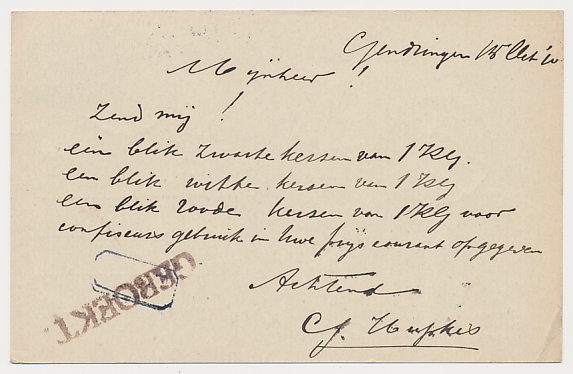 Gendringen 15 Oct '10
Mijnheer!
Zend mij!
één blik zwarte kersen van 1 Klg.
een blik witte kersen van 1 Klg
een blik roode kersen van 1 Klg voor
confiseurs gebruik in Uwe prijscourant opgegeven
Achtend
GEBOEKT